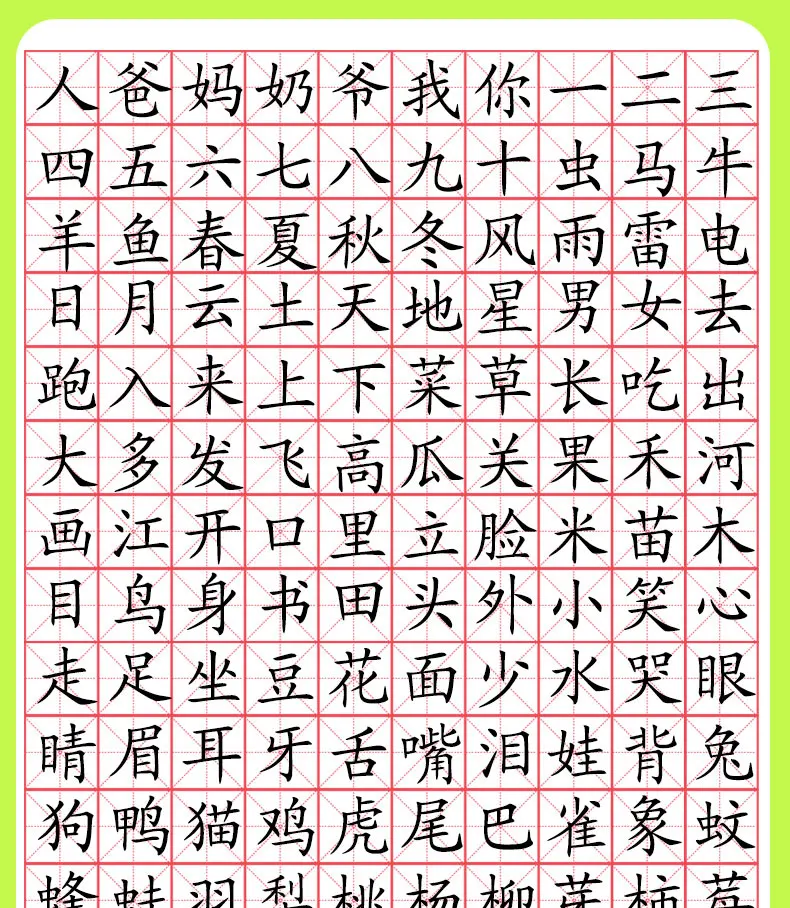 人爸妈奶爷我你一二三
四五六七八九十虫马牛
羊鱼春夏秋冬风雨雷电
日月云土天地星男女去
跑入来上下菜草长吃出
大多发飞高瓜关果禾河
画江开口里立脸米苗木
目鸟身书田头外小笑心
走足坐豆花面少水哭眼
睛眉耳牙舌嘴泪娃背兔
狗鸭猫鸡虎尾巴雀象蚊